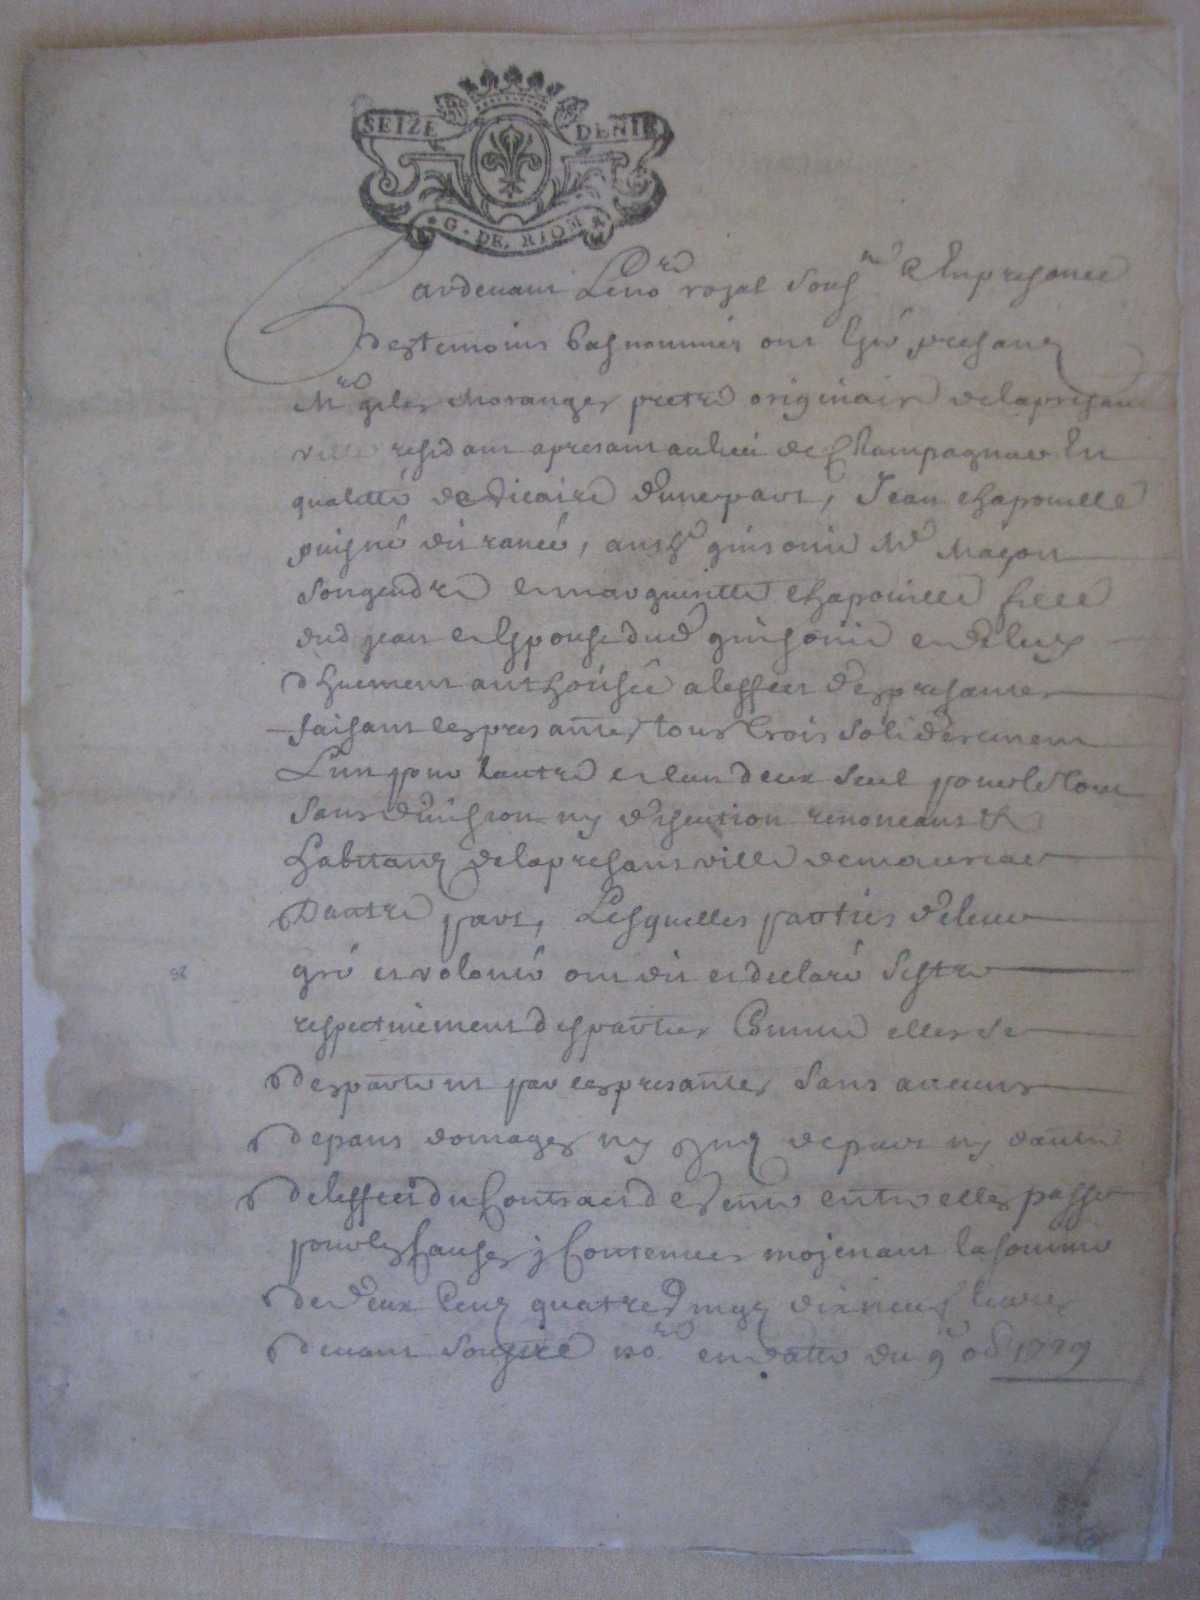 SEIZE DENIE
G. DE. RIOM
Pardevant Le no.re royal souss.né & En presence
des temoins bas nommés ont esté presans
M.re giles Moranges pretre originaire de la presant
ville residant apresant au lieu de Champagnac En
qualitté de vicaire d'une part, Jean chapouille
puisné dit , anth.e guisonie M.e Maçon
son gendre et margueritte chapouille fille
dud jean et Espouse dud guisonie et de luy
dhuement authorisée a leffect des presantes
faisant les presantes tous trois solidèrement
L'un pour lautre et lun deux seul pour le tout
sans division ny discution renonceant &
habitans de la presant ville de mauriac
Dautre part, Lesquelles parties de leur
gré et volonté ont dit et declaré s'estre
respectivement desparties Comme elles se
despartent par les presantes sans aucuns
depans domages ny de part ny dautre
de leffect du Contract de entre elles passé
pour les Causes y Contenues mojenant la somme
de deux Cens quatre vingz dix neuf livres
devant no.re en datte du 9 1729